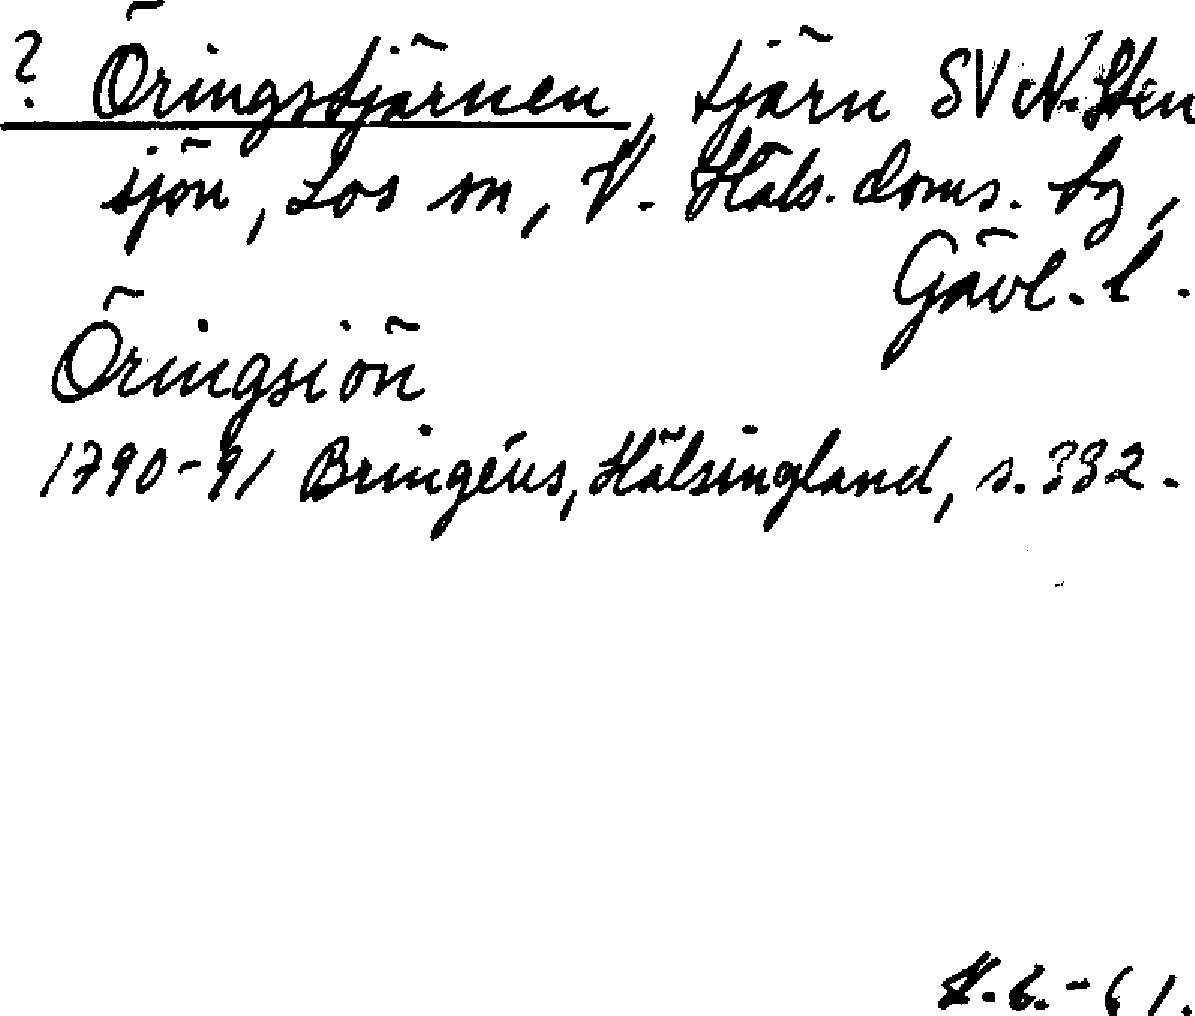 ? Öringstjärnen, tjärn SV N. Sten
sjön, Los sn, V. Häls. doms. tg,
Gävl. l.
Öringsiön
1790-91 Bringéus, Hälsingland, s. 332.